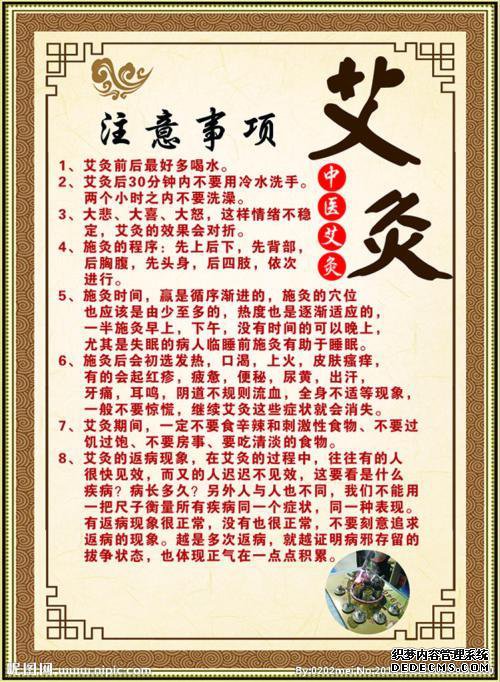 艾灸
中医艾灸
注意事项
1、艾灸前后最好多喝水。
2、艾灸后30分钟内不要用冷水洗手。
两个小时之内不要洗澡。
3、大悲、大喜、大怒，这样情绪不稳
定，艾灸的效果会对折。
4、施灸的程序：先上后下，先背部，
后胸腹，先头身，后四肢，依次
进行。
5、施灸时间，赢是循序渐进的，施灸的穴位
也应该是由少至多的，热度也是逐渐适应的，
一半施灸早上，下午，没有时间的可以晚上，
尤其是失眠的病人临睡前施灸有助于睡眠。
6、施灸后会初选发热，口渴，上火，皮肤瘙痒，
有的会起红疹，疲惫，便秘，尿黄，出汗，
牙痛，耳鸣，阴道不规则流血，全身不适等现象，
一般不要惊慌，继续艾灸这些症状就会消失。
7、艾灸期间，一定不要食辛辣和刺激性食物、不要过
饥过饱、不要房事、要吃清淡的食物。
8、艾灸的返病现象，在艾灸的过程中，往往有的人
很快见效，而又的人迟迟不见效，这要看是什么
疾病？病长多久？另外人与人也不同，我们不能用
一把尺子衡量所有疾病同一个症状，同一种表现。
有返病现象很正常，没有也很正常，不要刻意追求
返病的现象。越是多次返病，就越证明病邪存留的
拔争状态，也体现正气在一点点积累。
昵图网 www.nipic.com
By:0202mei No:201
织梦内容管理系统
DEDECMS.COM